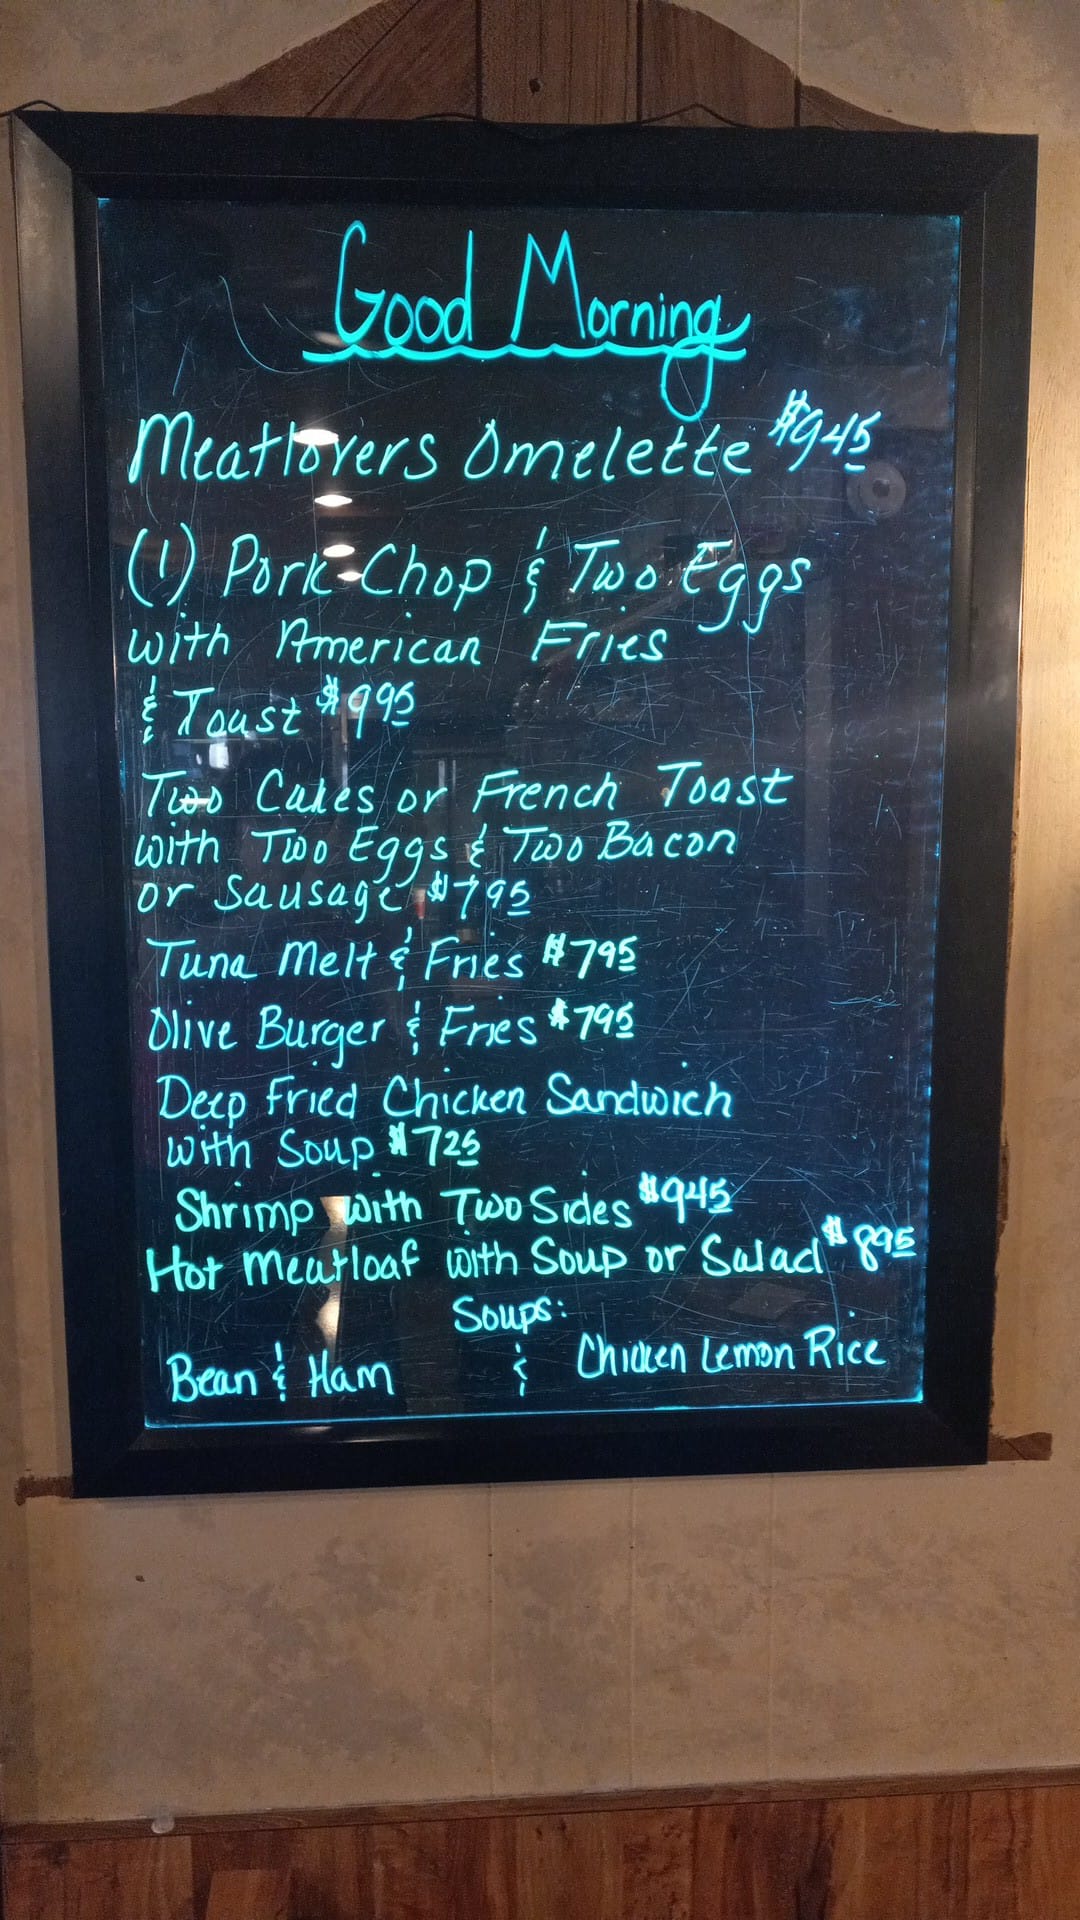 Good Morning
Meatlovers Omelette $945
(1) Pork Chop & Two Eggs
with American Fries
& Toast $995
Two Cakes or French Toast
with Two Eggs & Two Bacon
or Sausage $795
Tuna Melt & Fries $795
Olive Burger & Fries $795
Deep Fried Chicken Sandwich
with Soup $725
Shrimp with Two Sides $945
Hot Meatloaf with Soup or Salad $895
Soups:
Bean & Ham & Chicken Lemon Rice